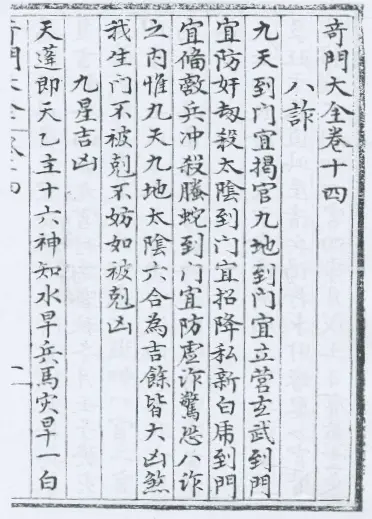 奇門大全卷十四
八詐
九天到门宜揭官九地到门宜立營玄武到門
宜防奸刼殺太陰到门宜招降私新白虎到門
宜偹敵兵冲殺螣蛇到门宜防虚诈驚恐八诈
之内惟九天九地太陰六合為吉餘皆大凶煞
我生门不被剋不妨如被剋凶
九星吉凶
天蓬即天乙主十六神知水旱兵馬灾旱一白